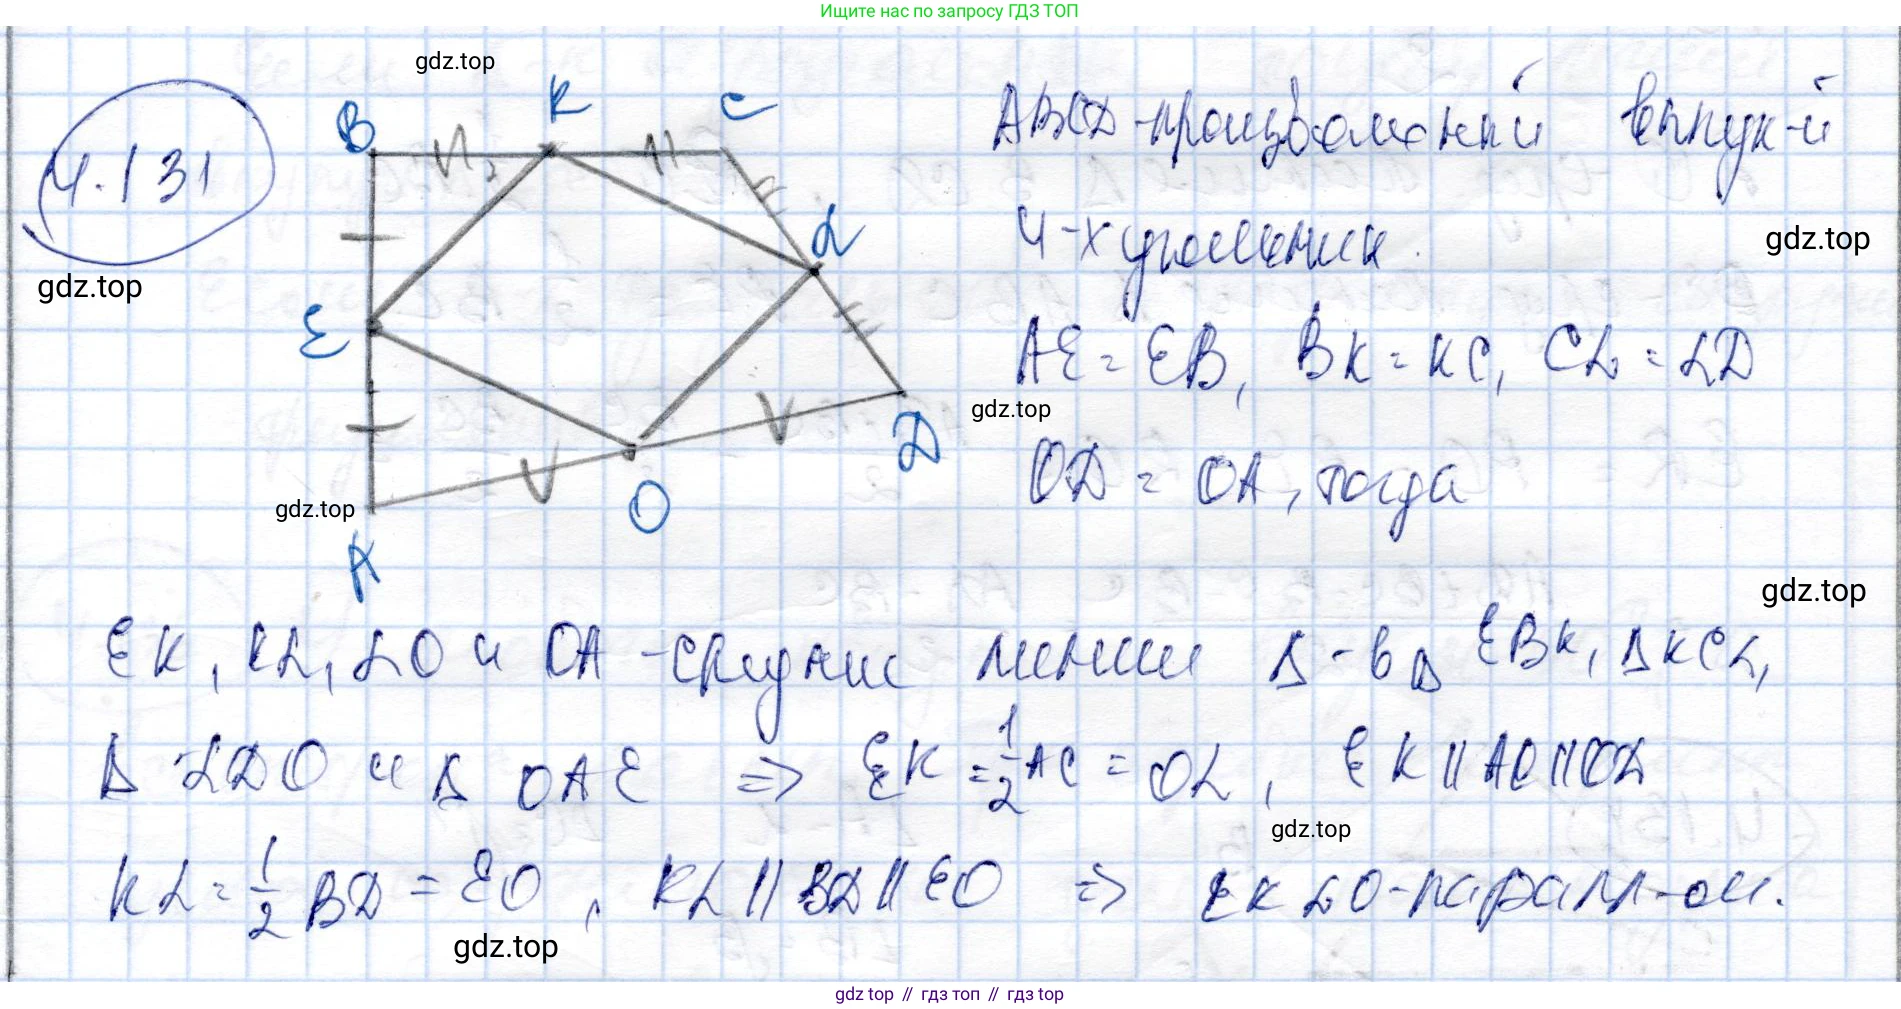 Ищите нас по запросу ГДЗ ТОП
gdz.top
4.131
B K C
L
E
D
O
A
gdz.top
gdz.top
ABCD - произвольный выпук-й
4-хугольник.
gdz.top
AE = EB, BK = KC, CL = LD
gdz.top
OD = OA, тогда
gdz.top
EK, KL, LO и OA - средние линии Δ-в Δ EBK, ΔKCL,
Δ LDO и Δ OAE => EK = 1/2 AC = OL, EK || AC || OL
gdz.top
KL = 1/2 BD = EO, KL || BD || EO => EKLO - паралл-ом.
gdz.top
gdz top // гдз топ // гдз top